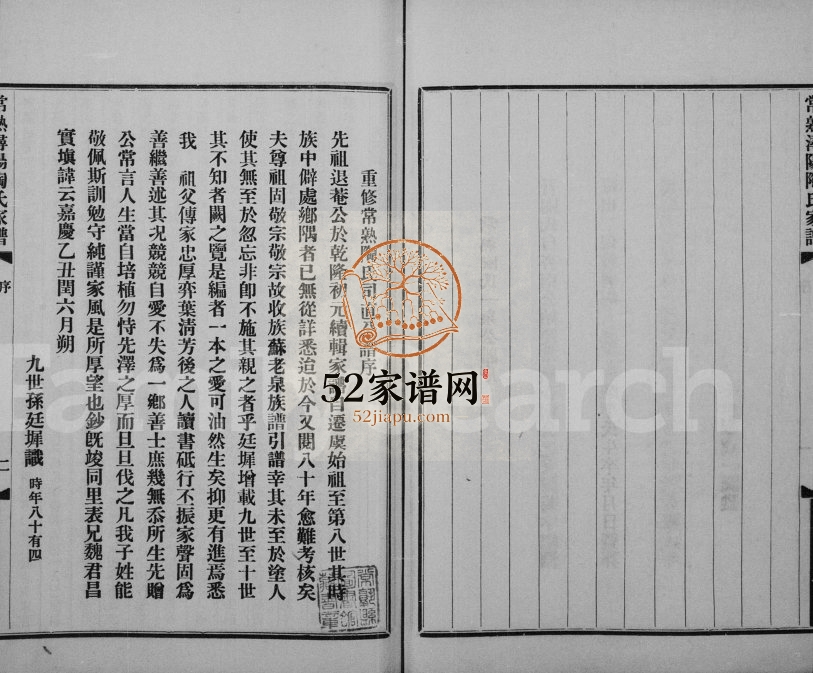 常熟潯陽陶氏家譜
重修常熟陶氏司直公譜序
先祖退菴公於乾隆初元續輯家譜自遷虞始祖至第八世其時
族中僻處鄉隅者已無從詳悉迨於今又閱八十年愈難考核矣
夫尊祖固敬宗敬宗故收族蘇老泉族譜引譜幸其未至於塗人
使其無至於忽忘非卽不施其親之者乎廷墀增載九世至十世
其不知者闕之覽是編者一本之愛可油然生矣抑更有進焉悉
我 祖父傳家忠厚弈葉清芳後之人讀書砥行不振家聲固爲
善繼善述其次競競自愛不失爲一鄉善士庶幾無忝所生先贈
公常言人生當自培植勿恃先澤之厚而旦旦伐之凡我子姓能
敬佩斯訓勉守純謹家風是所厚望也鈔旣竣同里表兄魏君昌
實塡諱云嘉慶乙丑閏六月朔
九世孫廷墀識 時年八十有四
常熟潯陽陶氏家譜
序
二
52家谱网
52jiapu.com